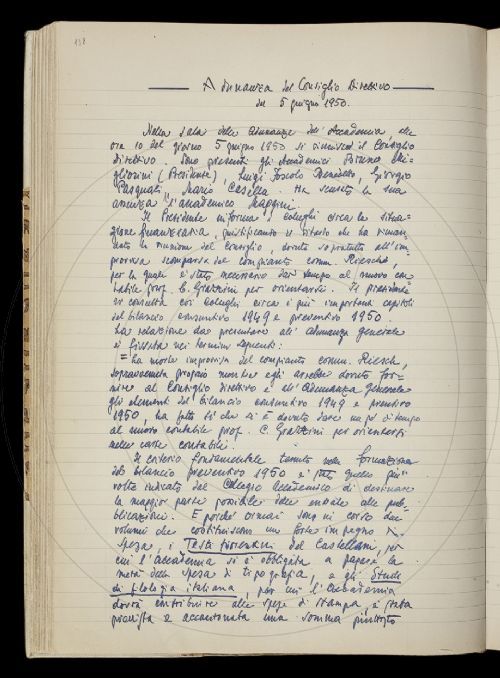 Adunanza del Consiglio Direttivo
del 5 giugno 1950.
Nella sala delle Adunanze dell'Accademia, alle
ore 10 del giorno 5 giugno 1950 si riunisce il Consiglio
direttivo. Sono presenti gli Accademici Bruno Mi-
gliorini (Presidente), Luigi Foscolo Benedetto, Giorgio
Pasquali, Mario Casella. Ha scusato la sua
assenza l'accademico Maggini.
Il Presidente informa i colleghi circa la situa-
zione finanziaria, giustificando il ritardo che ha riman-
dato la riunione del Consiglio, dovuto soprattutto all'im-
provvisa scomparsa del compianto comm.
per la quale è stato necessario dar tempo al nuovo con-
tabile prof. C. Grazzini per orientarsi. Il presidente
si consulta coi colleghi circa i più importanti capitoli
del bilancio consuntivo 1949 e preventivo 1950.
La relazione da presentare all'adunanza generale
è fissata nei termini seguenti:
"La morte improvvisa del compianto comm.
sopravvenuta proprio mentre egli avrebbe dovuto for-
nire al Consiglio direttivo e all'Adunanza generale
gli elementi del bilancio consuntivo 1949 e preventivo
1950, ha fatto sì che si è dovuto dare un po' di tempo
al nuovo contabile prof. C. Grazzini per orientarsi
nelle carte contabili.
Il criterio fondamentale tenuto nella formazione
del bilancio preventivo 1950 è stato quello più
volte indicato dal Collegio Accademico di destinare
la maggior parte possibile delle entrate alle pub-
blicazioni. E poiché ormai sono in corso due
volumi che costituiscono un forte impegno di
spesa, i Testi fiorentini del Castellani, per
cui l'Accademia si è obbligata a pagare la
metà della spesa di tipografia, e gli Studi
di filologia italiana, per cui l'Accademia
dovrà contribuire alle spese di stampa, è stata
prevista e accantonata una somma piuttosto